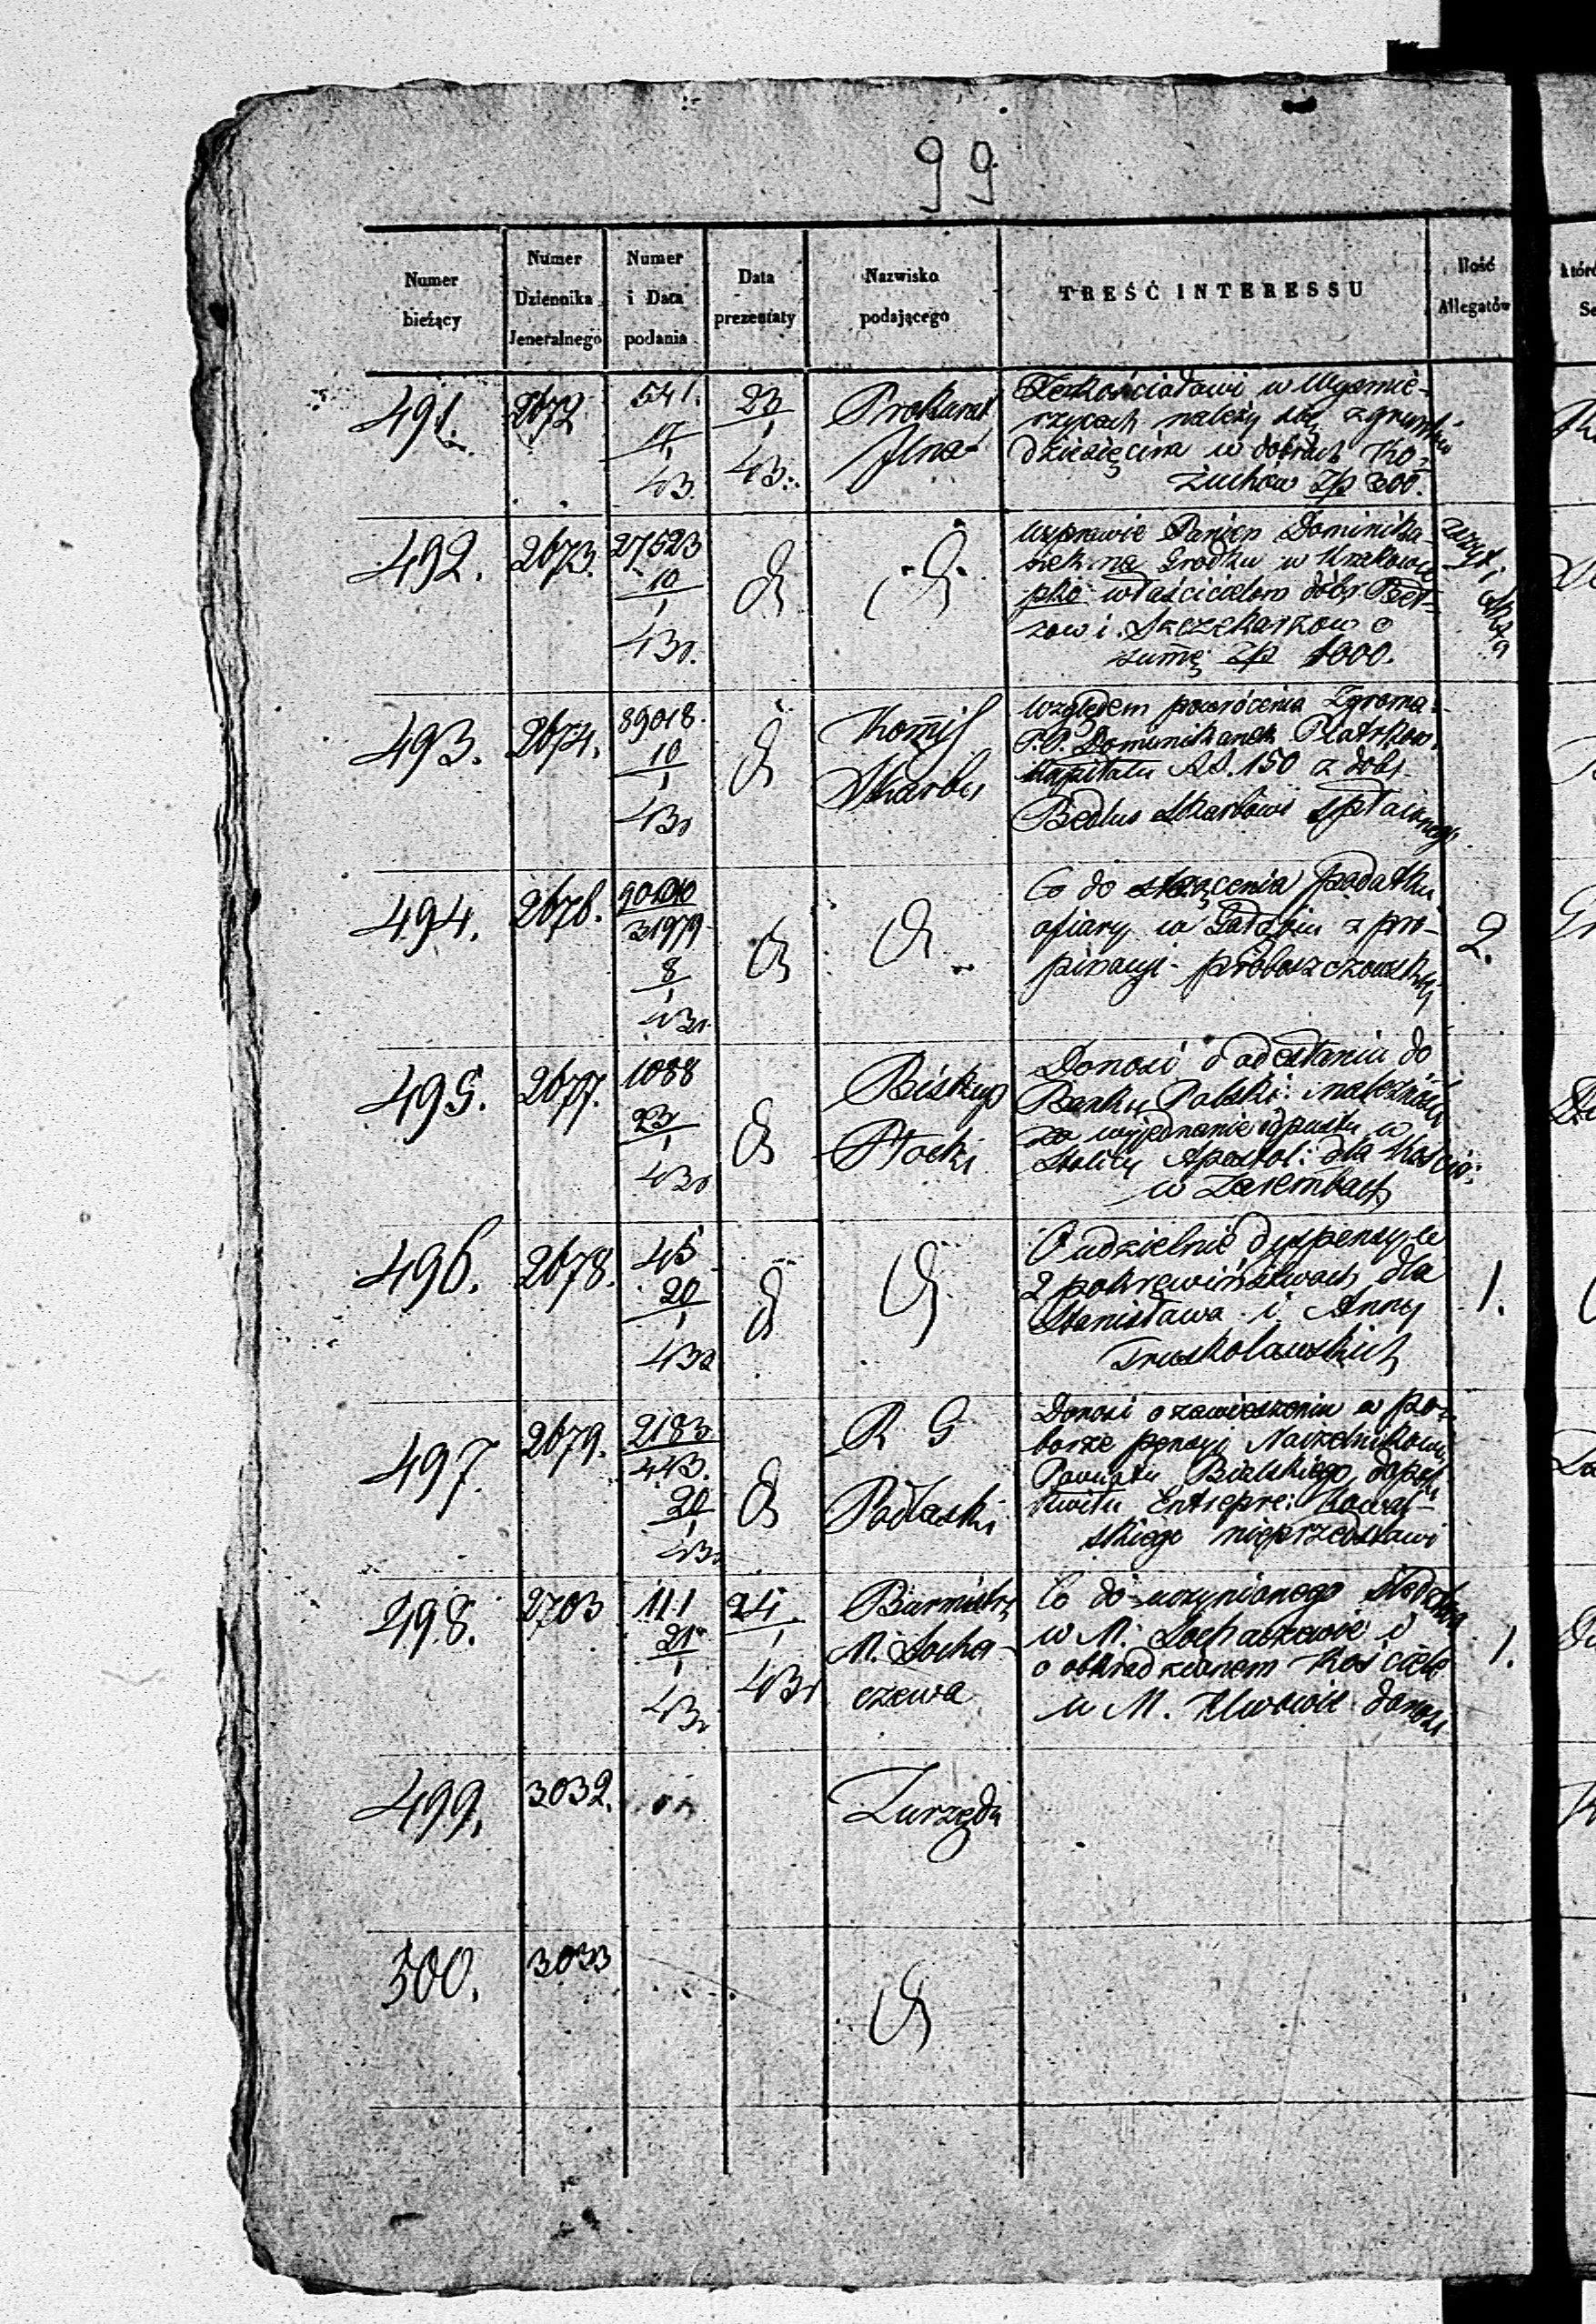 99
Numer bieżący
Numer Dziennika Jeneralnego
Numer i Data podania
Data prezentaty
Nazwisko podającego
TREŚĆ INTERESSU
Ilość Allegatów
491. 2672 541. 17/1 43. 23/1 43. Prokurat
Że Kościołowi w Wysmie-
rzycach należy się z gruntów
dziesięcina w dobrach Ko-
zuchów zp 300.
492. 2673. 27523 10/1 43.
w sprawie Panien Dominika-
nek na Grodku w Krakowie
pko właścicielom dóbr
zow i Szczekarzow o
summę zp 1000.
493. 2674. 89018. 10/1 43 Kommis Skarbu
względem powrócenia Zgroma-
P.P. Dominikanek Piotrkow.
Kapitału RS. 150 z dóbr
Bedlno Skarbowi spłaconego
494. 2676. 31979 8/1 43. 2.
Co do podatku
ofiary w z pro-
pinacyi proboszczowskiej
495. 2677. 1088 23/1 43 Biskup Płocki
Donosi o odesłaniu do
Banku Polski: należności
za wyjednanie odpustu w
Stolicy Apostol: dla Kościo:
w Zarembach
496. 2678. 45 20/1 43 1.
O udzielnie dyspensy w
2 pokrewieństwach dla
Stanisława i Anny
Truskolawskich
497. 2679. 2183 443. 20/1 43 R G Podlaski
Donosi o zawieszeniu w po-
borze pensyi Naczelnikowi
Powiatu Bialskiego,
kwitu Entrepre: Kowal-
skiego nieprzedstawi
498. 2703 111 21/1 43. 24/1 43 Burmistrz M. Socha-
czewa 1.
Co do uczynionego śledztwa
w M. Sochaczewie i
o okradzionem Kościele
w M. donosi
499. 3032. Zurzędu
500. 3033